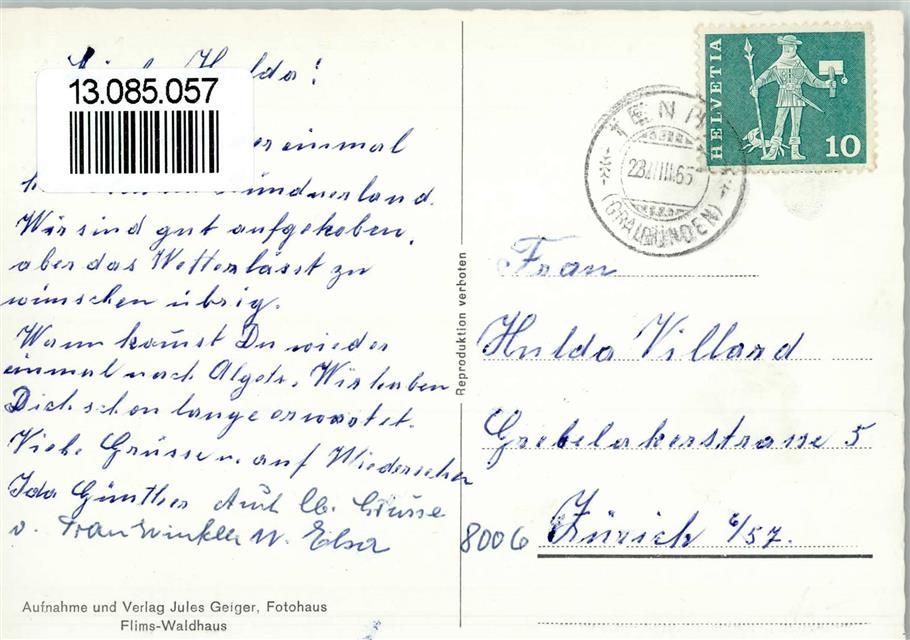 Hulda!
13.085.057
einmal
Bündnerland.
Wir sind gut aufgehoben,
aber das Wetter lässt zu
wünschen übrig.
Wann komst Du wieder
einmal nach Algets. Wir haben
Dich schon lange erwartet.
Viele Grüsse u. auf Wiedersehen
Ida Günther Auch lb. Grüsse
v. Frau Winkler u. Elsa
Aufnahme und Verlag Jules Geiger, Fotohaus
Flims-Waldhaus
Reproduktion verboten
HELVETIA
10
(GRAUBÜNDEN)
Frau
Hulda Villard
Grebelakerstrasse 5
8006 Zürich 6/57.